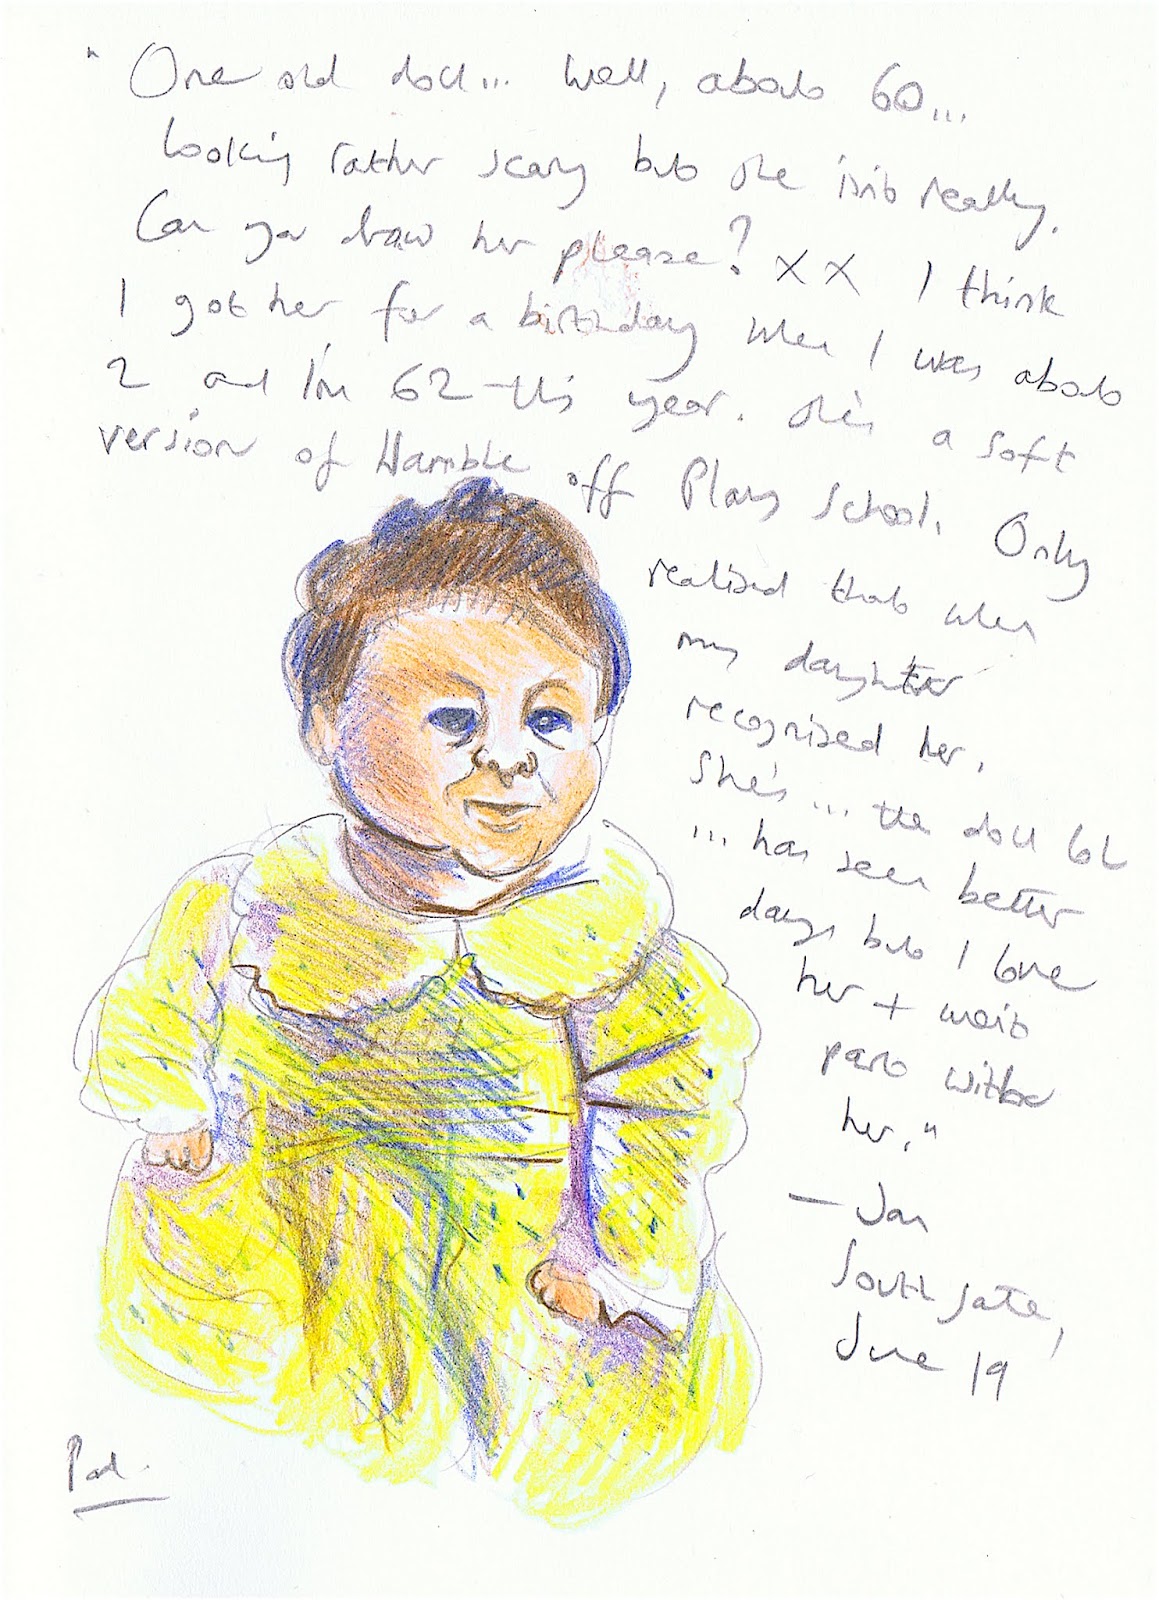 "One old doll... Well, about 60...
looking rather scary but she isn't really.
Can you draw her please? XX I think
I got her for a birthday when I was about
2 and I'm 62 this year. She's a soft
version of Hamble off Play School. Only
realised that when
my daughter
recognised her.
She's... the doll lol
... has seen better
days, but I love
her + won't
part with
her."
— Jan
Southgate,
June 19